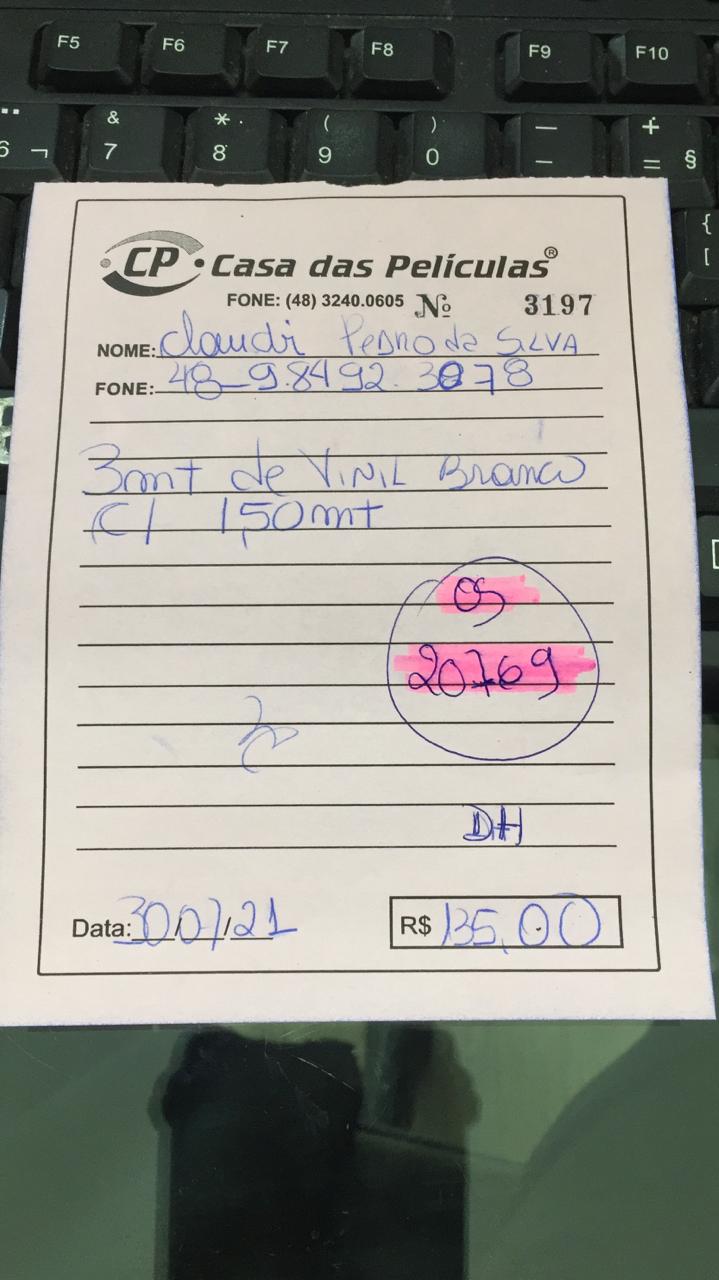 F5 F6 F7 F8 F9 F10
6 ¬ & 7 * 8 ( 9 ) 0 — – + = §
{ [
CP Casa das Películas®
FONE: (48) 3240.0605 Nº 3197
NOME: Claudi Pedro da SILVA
FONE: 48-9.8492.3078
3mt de VINIL Branco
C/ 1,50mt
OS
20769
DH
Data: 30/07/21 R$ 135,00